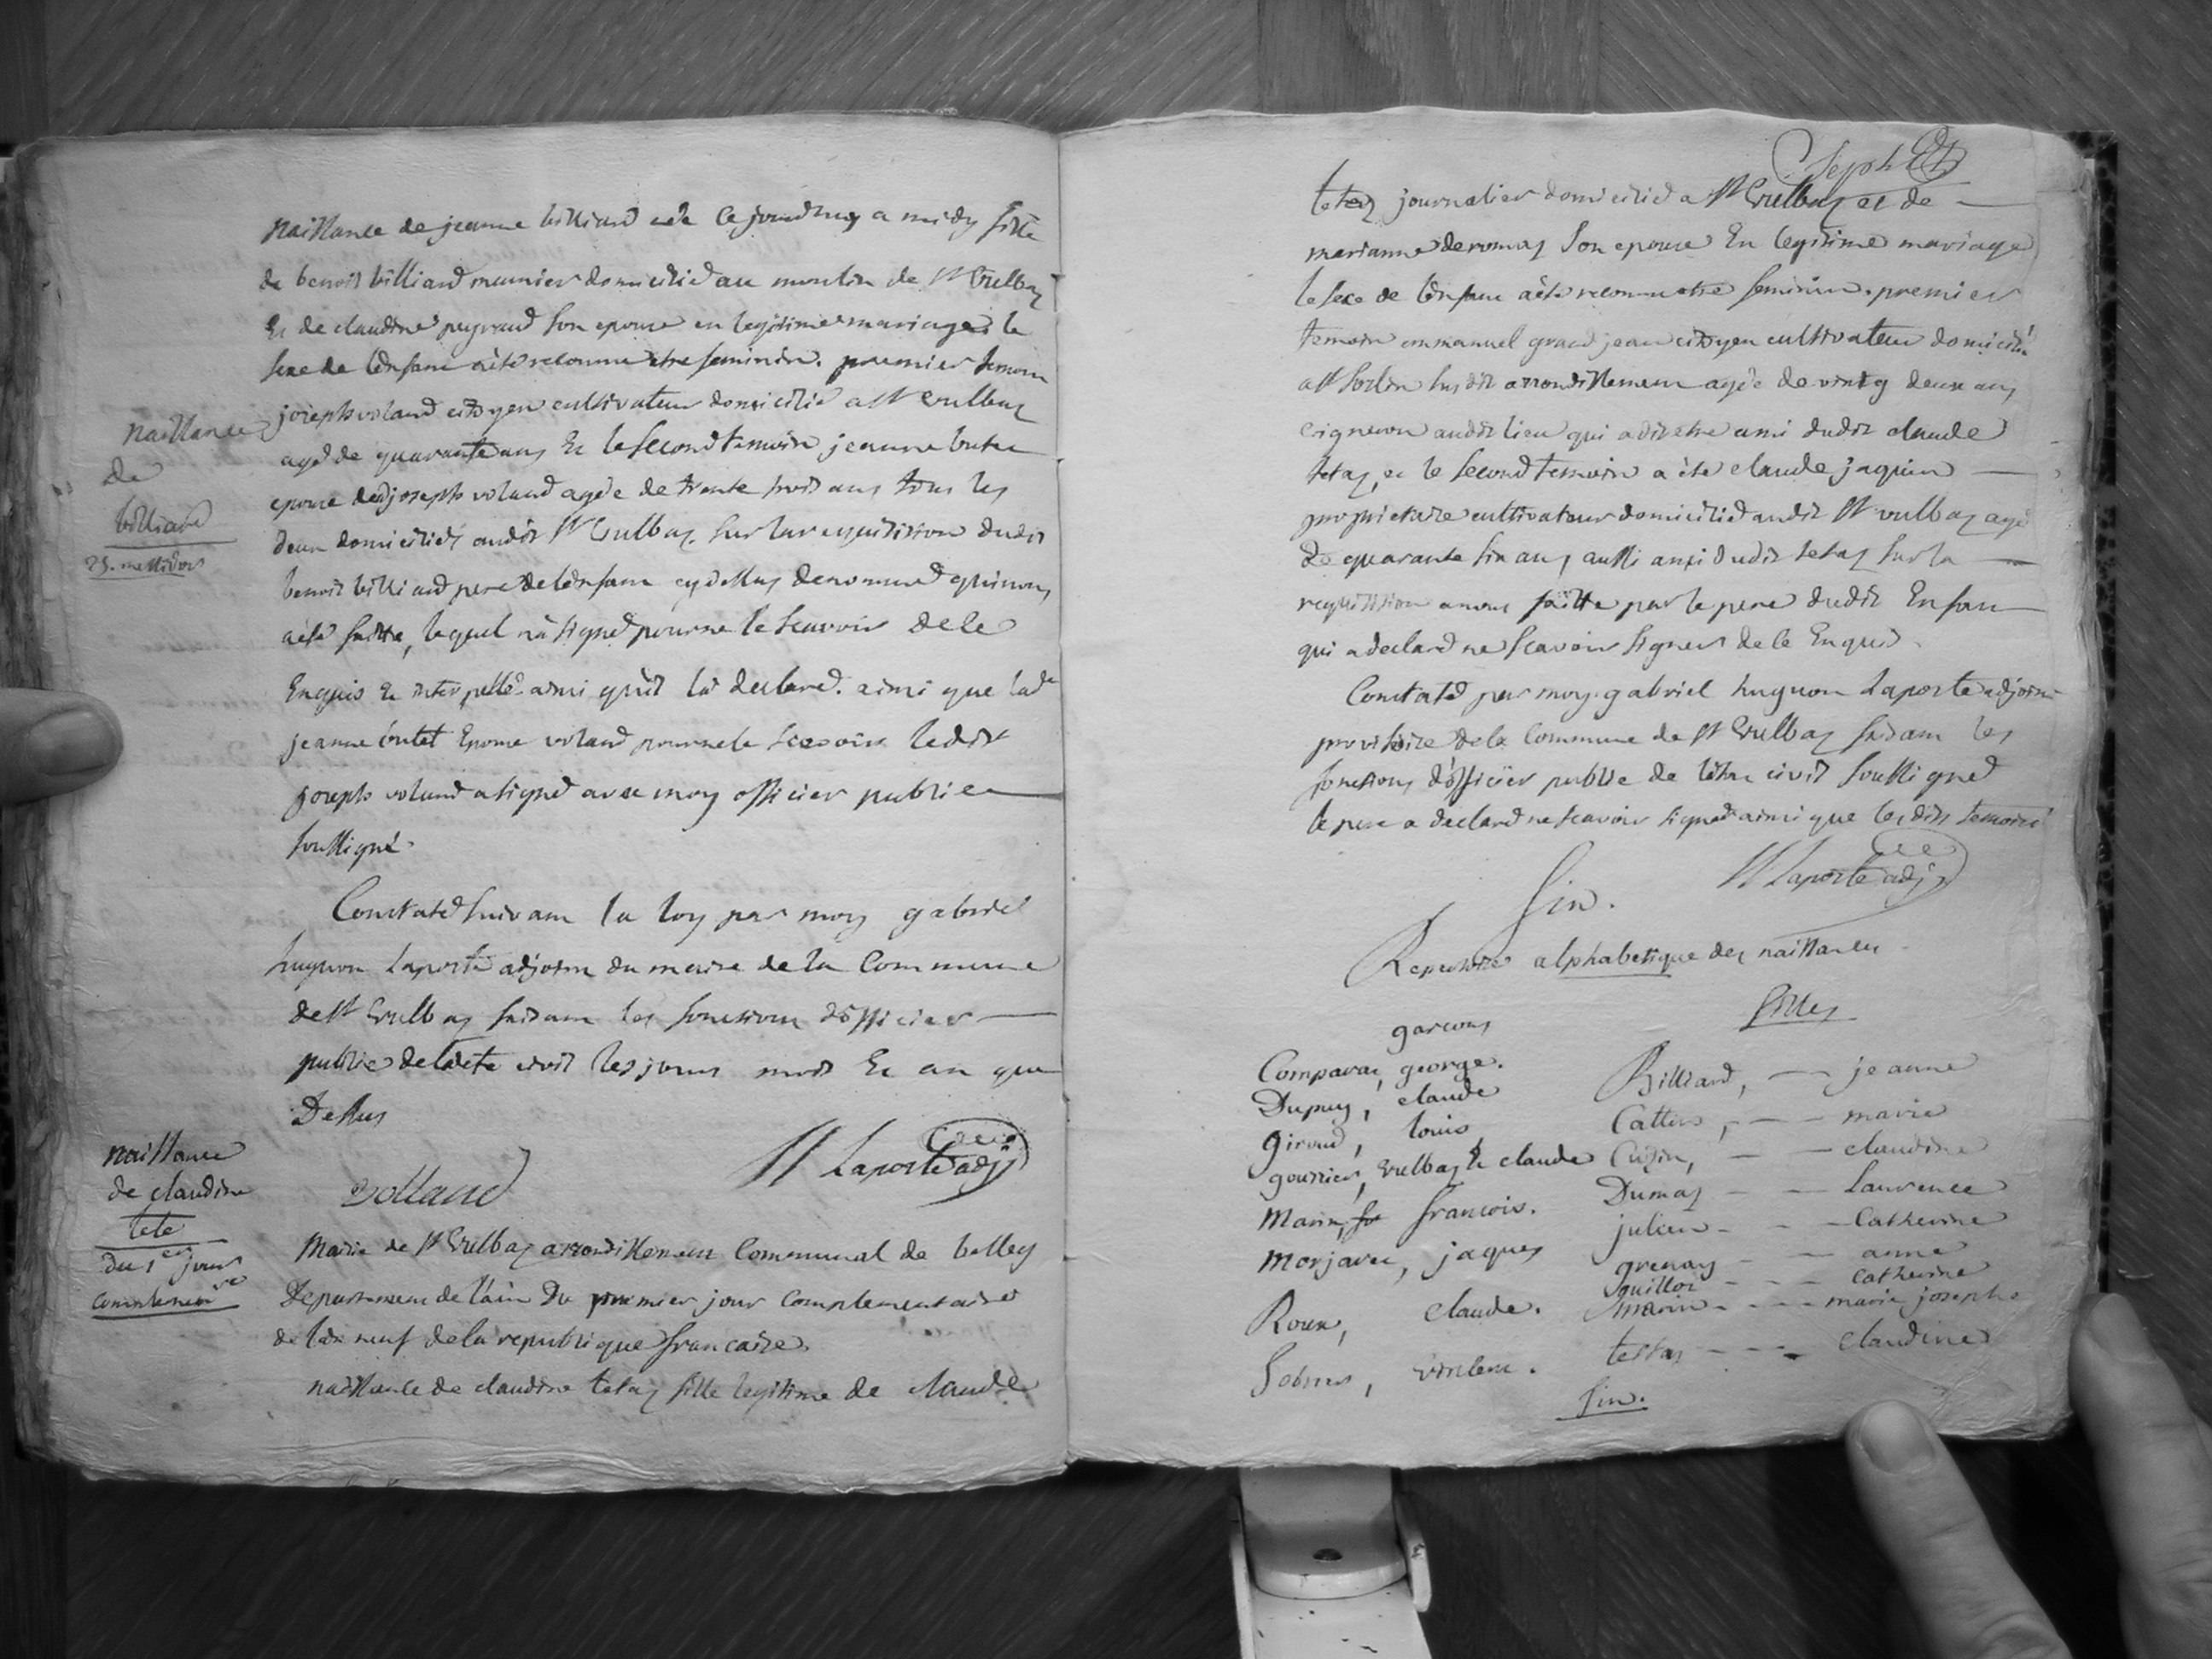 naissance de jeanne billiard née ce jourdhuy a midy fille
de benoit billiard meunier domicilié au moulin de St Vulbas
Et de claudine peyraud son epouse en legitime mariage, le
sexe de lenfant a été reconnu etre feminin. premier temoin
joseph voland citoyen cultivateur domicilié a St Vulbas
agé de quarante ans Et le second temoin jeanne boutet
epouse dud joseph voland agée de trente trois ans tous les
deux domiciliés audit St Vulbas. sur la requisition dudit
benoit billiard pere de lenfant cy dessus denommé qui nous
a été faitte, lequel n'a signé pour ne le scavoir de ce
Enquis Et interpellé ainsi qu'il l'a declaré. ainsi que lade
jeanne boutet Epouse voland pour ne le scavoir ledit
joseph voland a signé avec moy officier public
soussigné.
naissance
de
billiard
25. messidor
Constaté suivant la loy par moy gabriel
huguon Laporte adjoint du maire de la Commune
de St Vulbas faisant les fonctions d'officier
public de l'acte civil les jours mois Et an que
Dessus
Volland
H Laporte adjt
naissance
de claudine
teta
du 1er jour
complementre
Mairie de St Vulbas arrondissement Communal de belley
Departement de l'ain Du premier jour complementaire
de l'an neuf de la republique francaise
naissance de claudine tetaz fille legitime de claude
Sept
tetaz journalier domicilié a St Vulbas et de
marianne deromas son epouse En legitime mariage
le sexe de lenfant a été reconnu etre feminin. premier
temoin emmanuel grand jean citoyen cultivateur domicilié
a St Sorlin susdit arrondissement agée de vintg deux ans
vigneron audit lieu qui a dit etre ami dudit claude
tetaz, et le second temoin a été claude jaquin
proprietaire cultivateur domicilié audit St vulbas agé
de quarante six ans aussi ami dudit tetaz sur la
requission a nous faitte par le pere dudit Enfant
qui a declaré ne scavoir signer de ce Enquis.
Constaté par moy gabriel huguon Laporte adjoint
provisoire de la Commune de St Vulbas faisant les
fonctions d'officier public de l'état civil soussigné
le pere a declaré ne scavoir signer ainsi que lesdits temoins
H Laporte adjt
fin.
Repertoire alphabetique des naissances
garcons
filles
Comparat, george.
Billiard, — jeanne
Dupuy, claude
Cattin, — — marie
giroud, louis
Cuzin, — — claudine
gourrier, Vulbas Et claude
Dumas — — Laurence
Marin, francois.
julien — — Catherine
grenay — anne
Morjaret, jaques
guillot — — Catherine
Roux, claude.
Marin — — marie josephe
vincent.
testas — — claudine
fin.